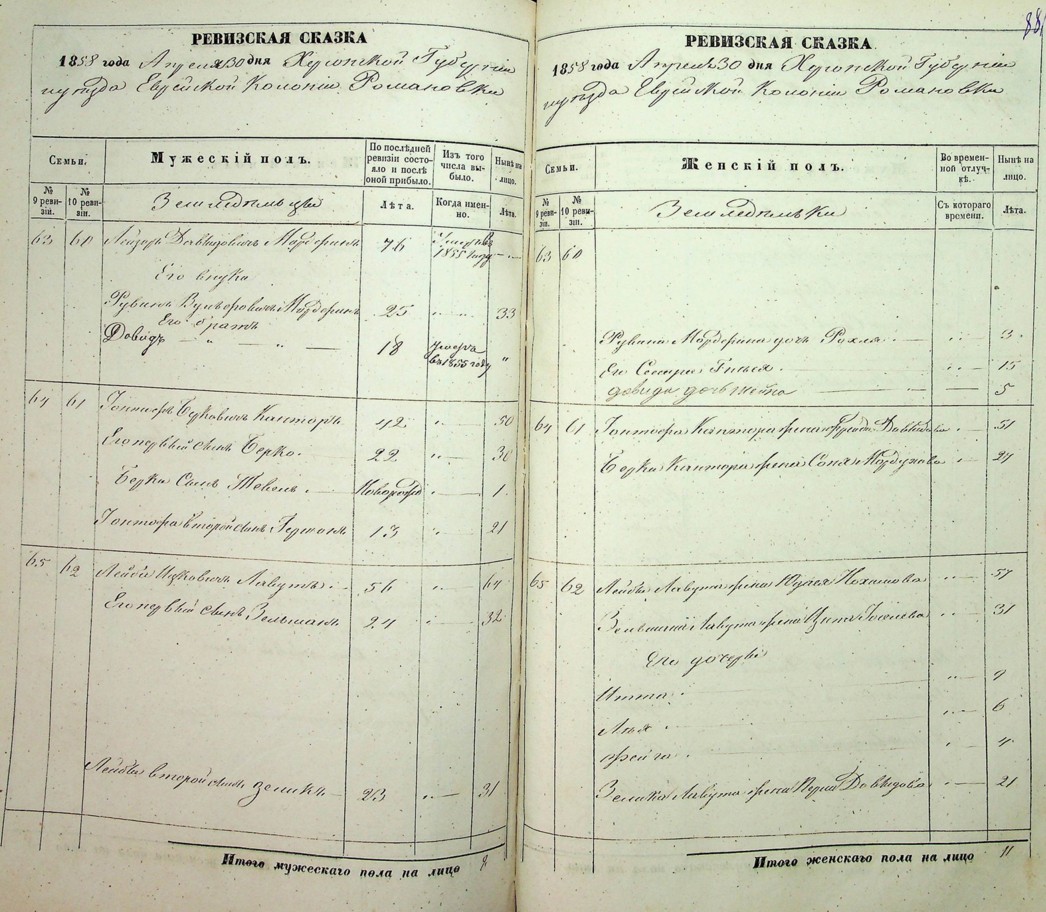 88
РЕВИЗСКАЯ СКАЗКА
1858 года Апреля 30 дня Херсонской Губернiи
уѣзда Еврейской Колонiи Романовки
Семьи.
Мужескiй полъ.
По послѣдней ревизiи состояло и послѣ оной прибыло.
Изъ того числа выбыло.
Нынѣ на лицо.
№ 9 ревизiи.
№ 10 ревизiи.
Земледельцы
Лѣта.
Когда именно.
Лѣта.
63 60 Лейзоръ Давыдовичъ 76 Умеръ въ 1855 году
Его внуки
Рувинъ Вульфовичъ 25 33
Его братъ
Довидъ 18 умеръ въ 1855 году "
64 61 Берковичъ Канторъ 42 50
Его первый сынъ Берко 22 30
Берка Сынъ Тевель Новорожд 1
второй сынъ 13 21
65 62 Лейба Ицковичъ Лавутъ 56 64
Его первый сынъ Зельманъ 24 32
Лейбы второй сынъ Зеликъ 23 31
Итого мужескаго пола на лицо 8
РЕВИЗСКАЯ СКАЗКА
1858 года Апреля 30 дня Херсонской Губернiи
уѣзда Еврейской Колонiи Романовки
Семьи.
Женскiй полъ.
Во временной отлучкѣ.
Нынѣ на лицо.
№ 9 ревизiи.
№ 10 ревизiи.
Земледельки
Съ котораго времени.
Лѣта.
63 60
Рувина дочь Рохля 3
Его Сестра 15
довида дочь 5
64 61 Кантора жена Давидова 51
Берка Кантора жена Соня Мордухова 27
65 62 Лейбы Лавута жена Нохимова 57
Лавута жена 31
Его дочери
Итта 9
6
4
Зелика Лавута жена Давыдова 21
Итого женскаго пола на лицо 11